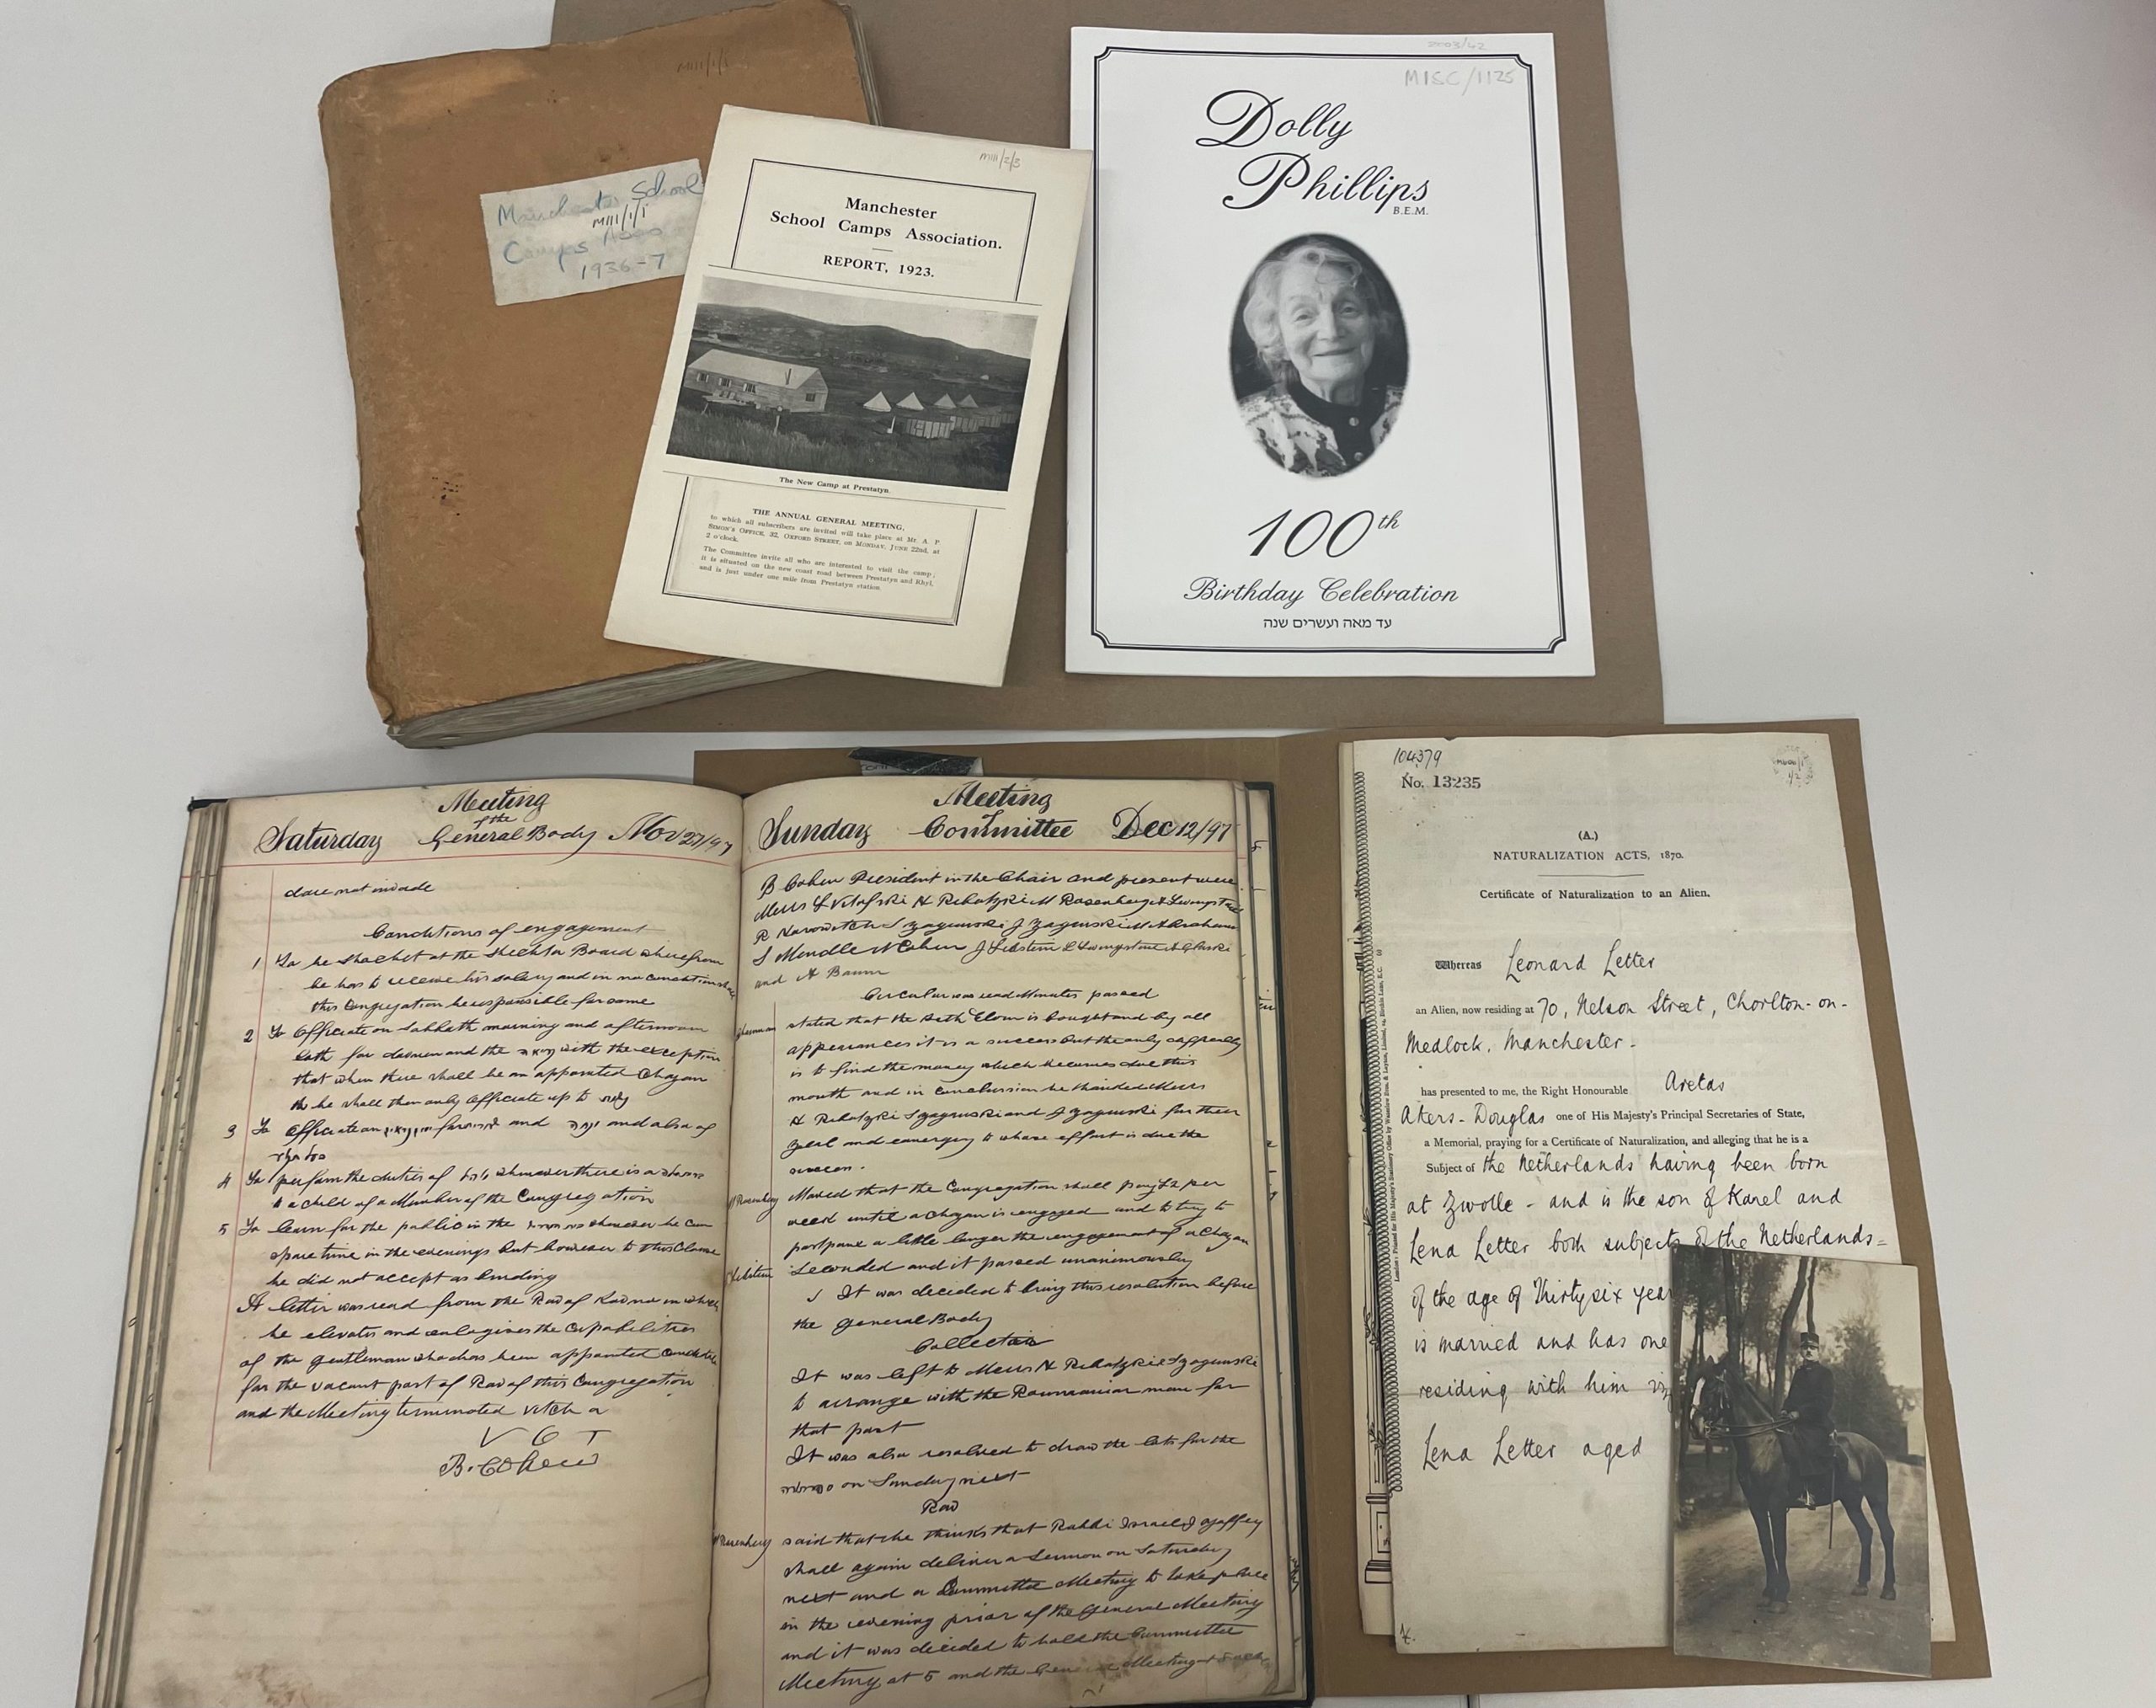 Manchester School
M111/1/1
Camps
1936-7
M111/2/3
Manchester
School Camps Association.
REPORT, 1923.
The New Camp at Prestatyn.
THE ANNUAL GENERAL MEETING,
to which all subscribers are invited will take place at Mr. A. P.
SIMON'S OFFICE, 32, OXFORD STREET, on MONDAY, JUNE 22nd, at
2 o'clock.
The Committee invite all who are interested to visit the camp;
it is situated on the new coast road between Prestatyn and Rhyl,
and is just under one mile from Prestatyn station.
2003/62
MISC/1125
Dolly
Phillips
B.E.M.
100th
Birthday Celebration
עד מאה ועשרים שנה
Meeting
of the
Saturday General Body Nov 27/97
dare not invade
Conditions of engagement
1 To be Shochet at the Shechita Board wherefrom
he has to receive his salary and in no condition shall
this Congregation be responsible for same
2 To Officiate on Sabbath morning and afternoon
both for and the with the exception
that when there shall be an appointed Chazan
he shall then only officiate up to
3 To Officiate on for and and also
4 To perform the duties of whenever there is a
to a child of a Member of the Congregation
5 To learn for the public in the whenever he can
spare time in the evenings but however to this Clause
he did not accept as binding
A letter was read from the Rav of Kovno in which
he elevates and eulogises the Capabilities
of the gentleman who has been appointed Candidate
for the vacant post of Rav of this Congregation
and the Meeting terminated with a
V O T
B. Cohen
Meeting
of
Sunday Committee Dec 12/97
B Cohen President in the Chair and present were
Messrs H Ribatzki M Rosenberg Livingstone
R Horowitch S Zagumski J Zagumski M Abrahams
S Mendle N Cohen J Libstein L Livingstone
and A Baum
Circular was read Minutes passed
Chairman stated that the Beth Olom is bought and by all
appearances it is a success but the only difficulty
is to find the money which becomes due this
month and in conclusion he thanked Messrs
H Ribatzki S Zagumski and J Zagumski for their
zeal and energy to whose effort is due the
success.
M Rosenberg Moved that the Congregation shall pay £2 per
week until a Chazan is engaged and to try to
postpone a little longer the engagement of a Chazan
Libstein Seconded and it passed unanimously
It was decided to bring this resolution before
the general Body
Collector
It was left to Messrs H Ribatzki & S Zagumski
to arrange with the Roumanian man for
that post
It was also resolved to draw the lots for the
on Sunday next
Rav
M Rosenberg said that he thinks that Rabbi Israel J Yoffey
shall again deliver a Sermon on Saturday
next and a Committee Meeting to take place
in the evening prior of the General Meeting
and it was decided to hold the Committee
Meeting at 5 and the General Meeting at
104379
No. 13235
(A.)
NATURALIZATION ACTS, 1870.
Certificate of Naturalization to an Alien.
Whereas Leonard Letter
an Alien, now residing at 70, Nelson Street, Chorlton-on-
Medlock, Manchester.
has presented to me, the Right Honourable Aretas
Akers-Douglas one of His Majesty's Principal Secretaries of State,
a Memorial, praying for a Certificate of Naturalization, and alleging that he is a
Subject of the Netherlands having been born
at Zwolle - and is the son of Karel and
Lena Letter both subjects of the Netherlands =
of the age of Thirty six year
is married and has one
residing with him
Lena Letter aged